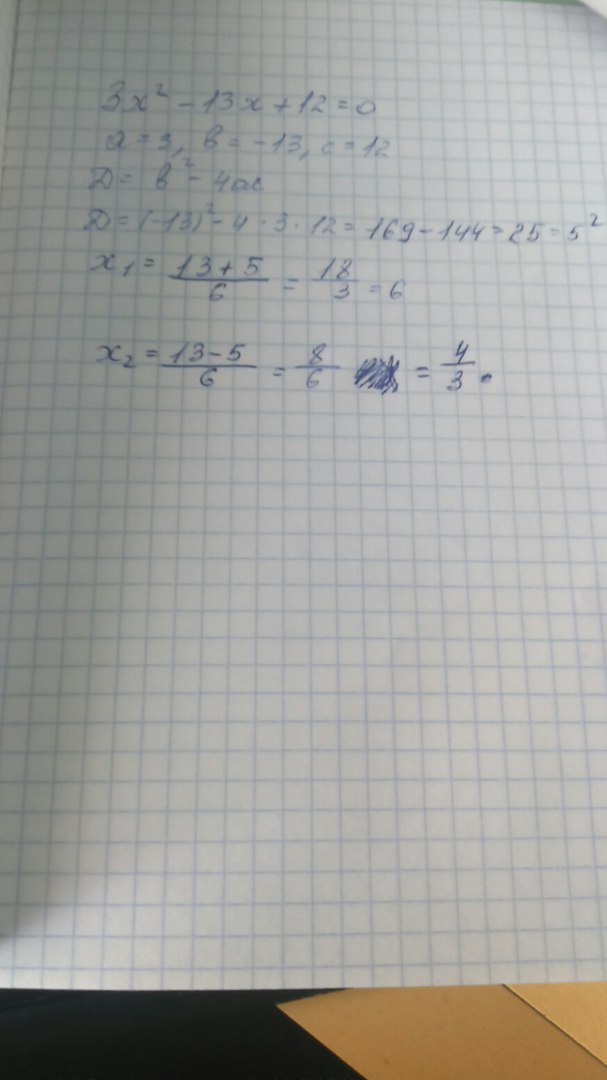 3x² - 13x + 12 = 0
a = 3, b = -13, c = 12
D = b² - 4ac
D = (-13)² - 4 · 3 · 12 = 169 - 144 = 25 = 5²
x₁ = (13+5)/6 = 18/3 = 6
x₂ = (13-5)/6 = 8/6 = 4/3.